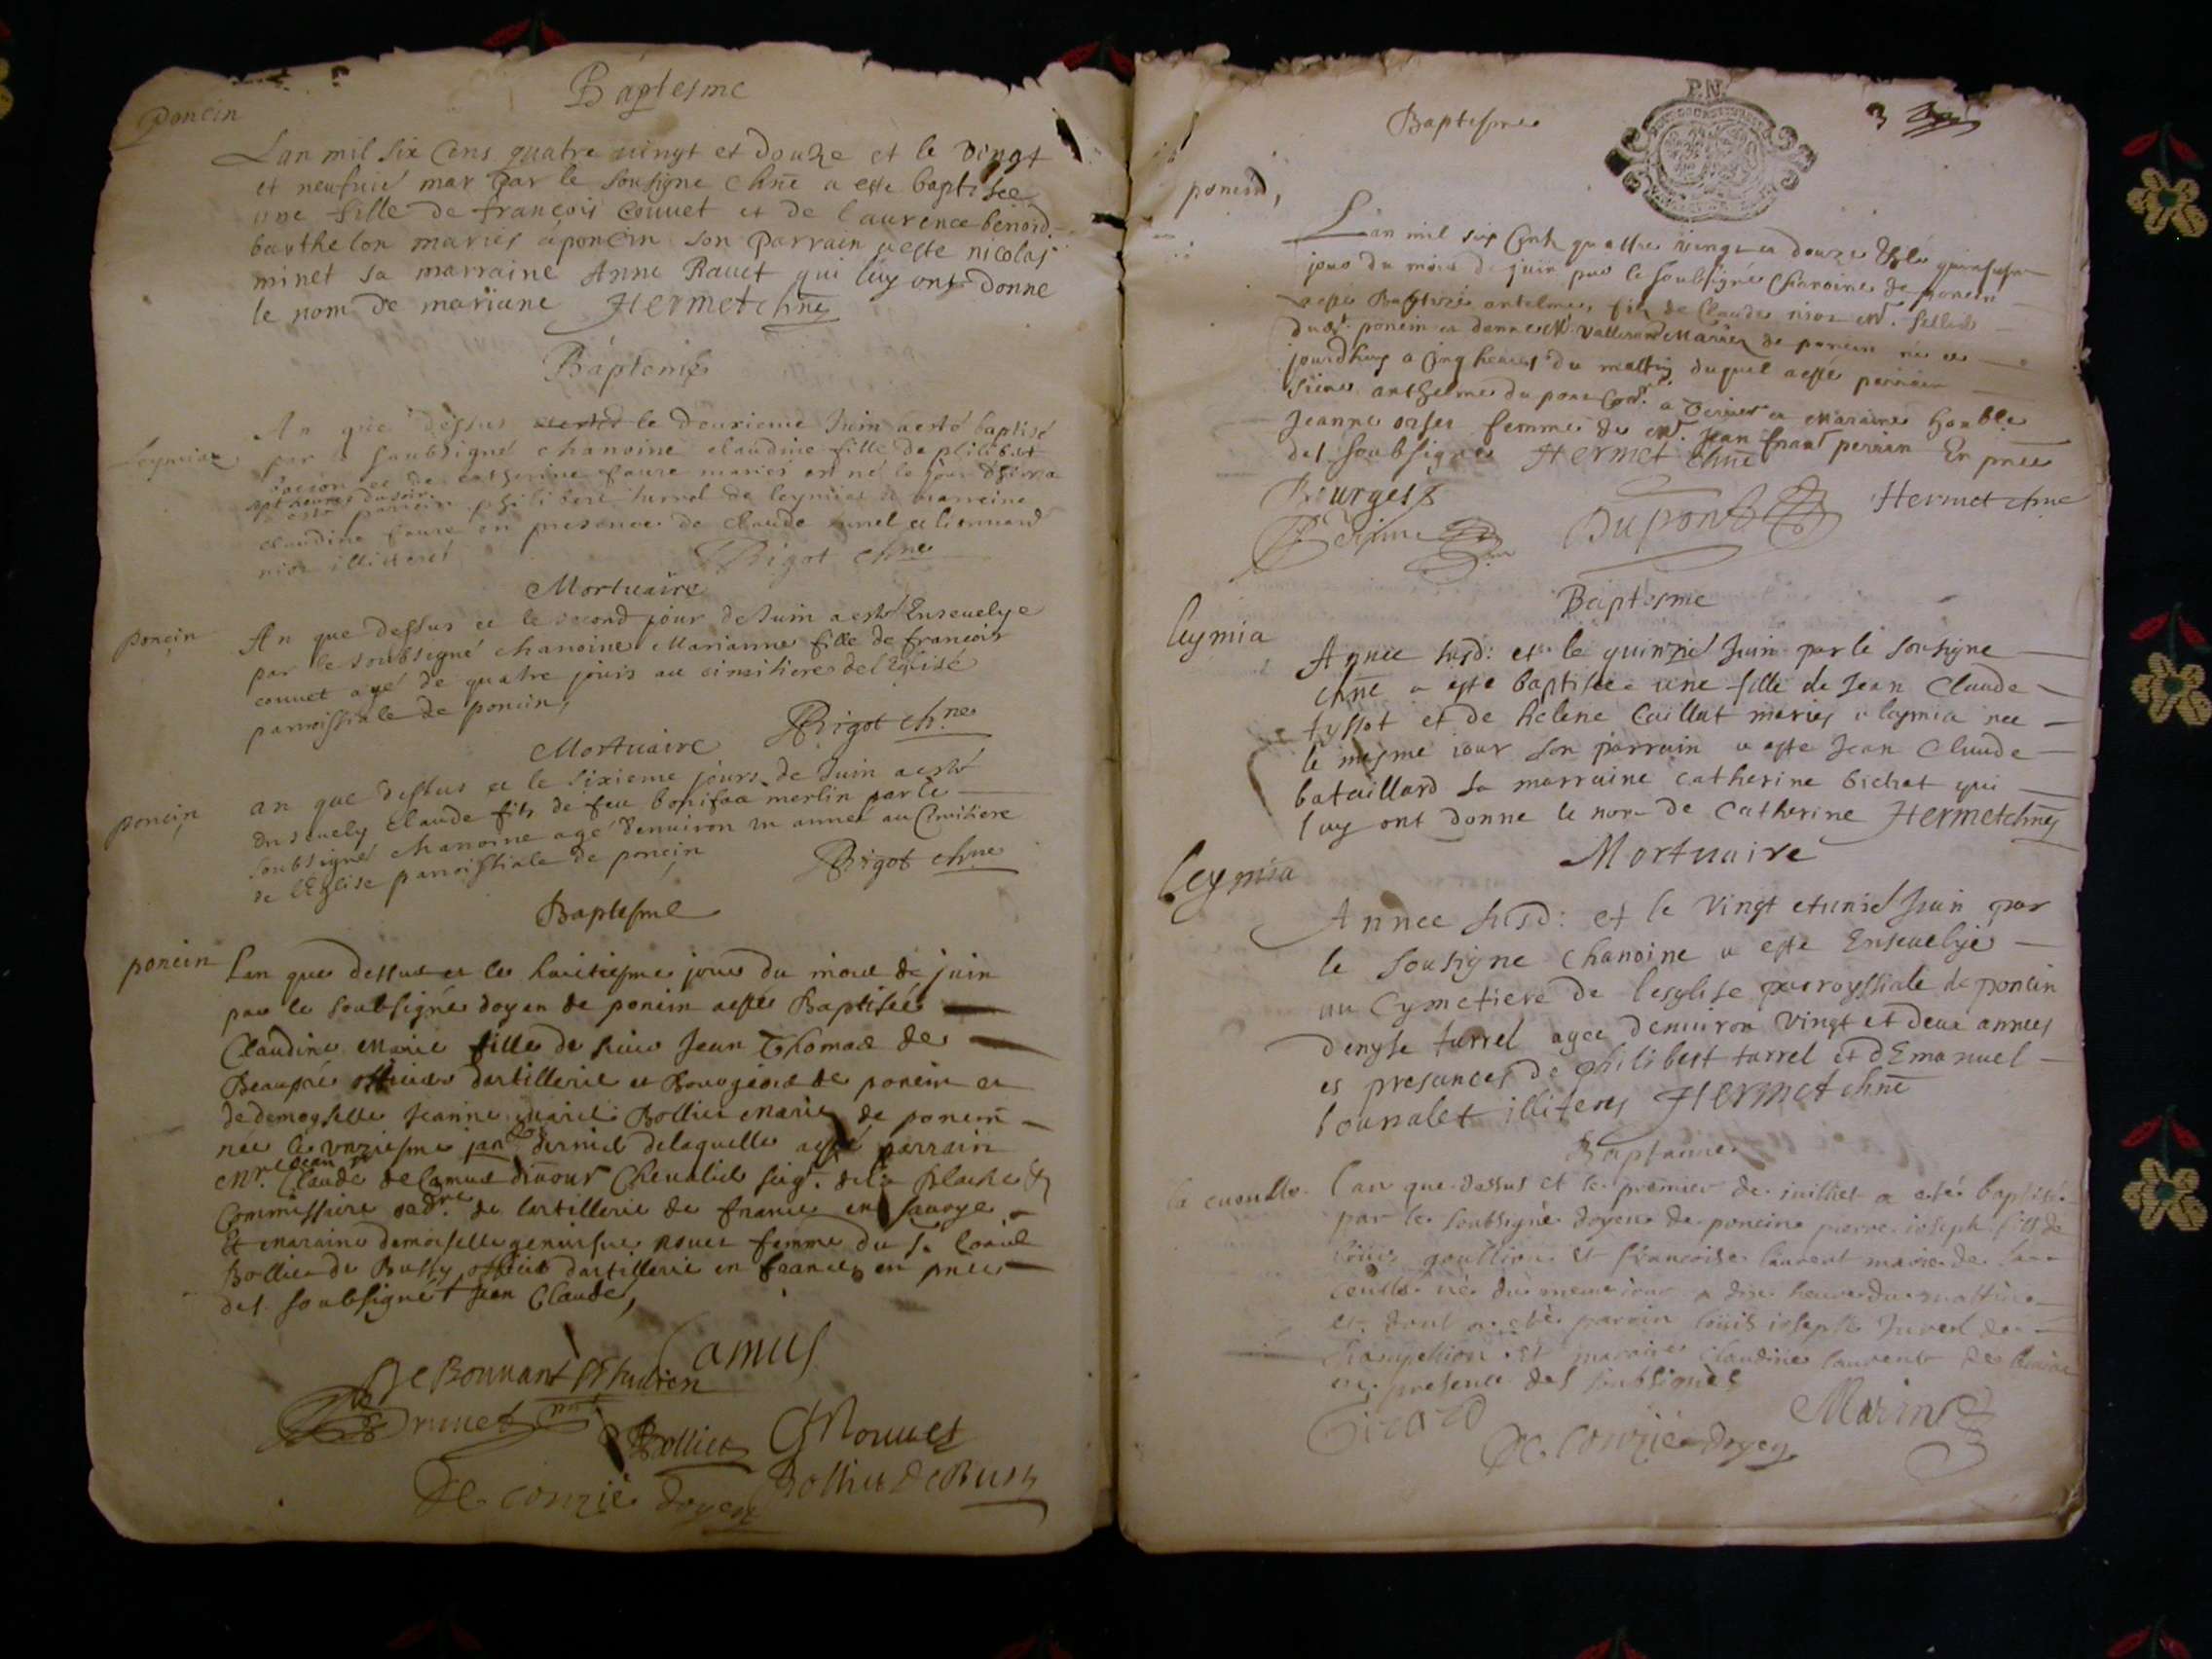 Baptesme
poncin
Lan mil six Cens quatre vingt et douze et le vingt
et neufuie mar par le sousigne chne a este baptisee
une fille de françois couuet et de laurence benoid
barthelon maries a poncin son parrain a este nicolas
minet sa marraine Anne Rauet qui luy ont donne
le nom de mariane Hermet chne
Baptem
An que dessus le deuxieme Juin a esté baptisé
par soubsigné chanoine claudine fille de philibert
et de catherine faure mariés et né le jour
sept heures du soir parrain philibert turrel de leymiat marreine
claudine faure en presence de claude et lionnard
illitteres
Bigot chne
Mortuaire
poncin
An que dessus et le second jour de Juin a esté Enseuelye
par le soubsegné chanoine Marianne fille de francois
couuet agé de quatre jours au cimitiere de l'Eglise
parroissiale de poncin,
Bigot chne
Mortuaire
poncin
an que dessus et le sixieme jours de Juin a esté
Enseuely Claude fils de feu bonifaa merlin par le
soubsigné chanoine agé denuiron un année au Cimitiere
de l'Eglise parroissiale de poncin
Bigot chne
Baptesme
poncin
Lan que dessus et le huitiesme jour du mois de juin
par le soubsigné doyen de poncin a esté Baptisée
Claudine Marie fille de sieur Jean Thomas de
Beaupré officier dartillerie et Bourgeois de poncin et
de demoyselle Jeanne Marie Bollier Mariez de poncin
née le unziesme janer dernier de laquelle a esté parrain
Mre Jean Claude de Camus Chevalier seigr. de la
Commissaire ordre de lartillerie de france en Sauoye
Et maraine demoiselle geneuiefue Rouer femme du Sr
Bollier de Bussy officier dartillerie en france en pnce
des soubsignés Jean Claude,
Camus
De Bonnant
Brunet
Bollier Rouuer
De Conzié doyen Bollier De Bussy
P.N.
3
Baptesme
poncin,
Lan mil six Cents quattre vingt et douze & le quinsiesme
jour du mois de juin par le soubsigné Chanoine de poncin
a esté Baptizé antelme, fils de Claude niot Mr. sellier
dudt. poncin et danne Mariez de poncin né ce
jourdhuy a Cinq heures du mattin duquel a esté parrain
Sieur anthelme du pont a et Maraine honble
Jeanne orset femme de Mr. Jean perrin En pnce
des soubsignés Hermet chne
Bourgess
Dupont
Hermet chne
Baptesme
leymia
Annee susd: et le quinzie Juin par le sousigne
chne a este baptisee une fille de Jean Claude
tyssot et de helene Caillat maries a leymia nee
le mesme iour son parrain a este Jean Claude
bataillard sa marraine catherine bichat qui
luy ont donne le nom de Catherine Hermet chne
Mortuaire
leymia
Annee susd: et le vingt et unie Juin par
le sousigne chanoine a este Enseuelye
au Cymetiere de lesglise parroyssiale de poncin
denyse turrel agee denuiron vingt et deux annees
es presances de philibert turrel et dEmanuel
tournalet illiteres Hermet chne
Baptaime
la cueulle
lan que dessus et le premier de juilliet a eté baptisé
par le soubsigné doyen de poncin pierre ioseph fils de
louis goullion et francoise laurent marié de la
ceuille né du meme iour a dix heure du mattin
et dont a eté parrain louis ioseph
et maraine Claudine laurent de
en presence des soubsignés
Girard
Marin
De Conzié doyen